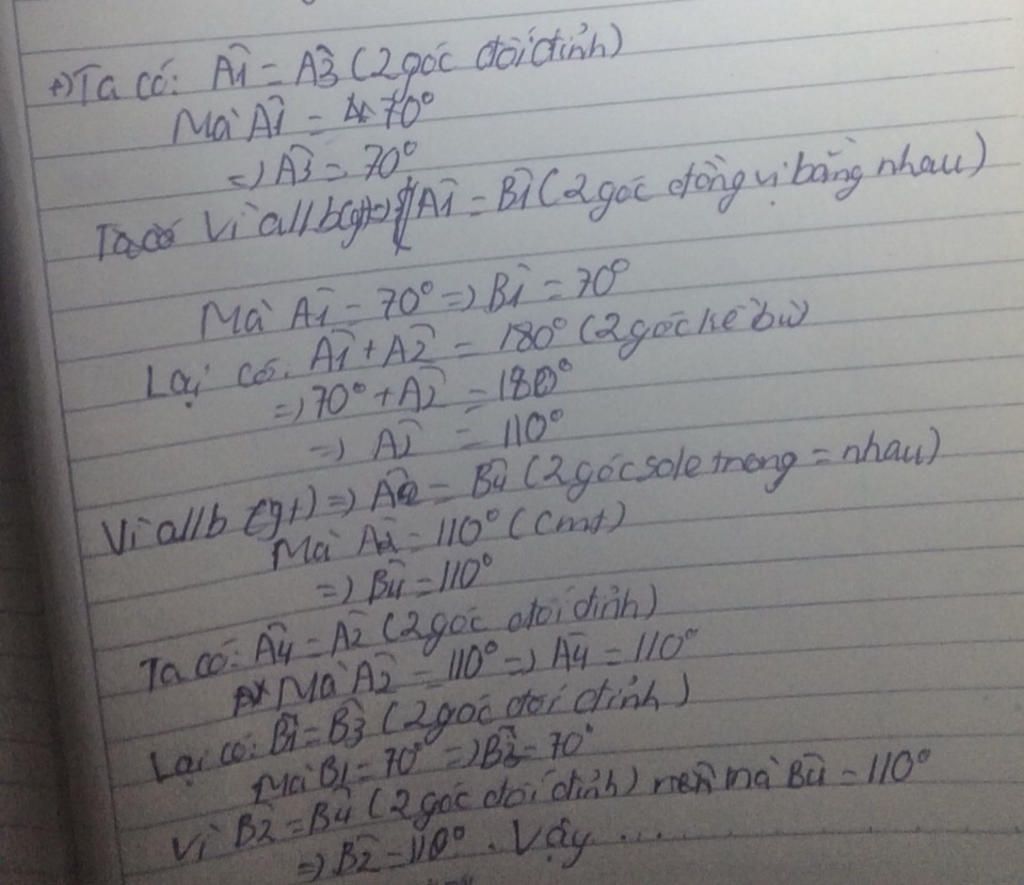 +) Ta có: Â1 = Â3 (2 góc đối đỉnh)
Mà Â1 = 70°
=) Â3 = 70°
Vì a//b (gt) =) Â1 = B̂1 (2 góc đồng vị bằng nhau)
Mà Â1 = 70° =) B̂1 = 70°
Lại có: Â1 + Â2 = 180° (2 góc kề bù)
=) 70° + Â2 = 180°
=) Â2 = 110°
Vì a//b (gt) =) Â2 = B̂4 (2 góc sole trong = nhau)
Mà Â2 = 110° (cmt)
=) B̂4 = 110°
Ta có: Â4 = Â2 (2 góc đối đỉnh)
Mà Â2 = 110° =) Â4 = 110°
Lại có: B̂1 = B̂3 (2 góc đối đỉnh)
Mà B̂1 = 70° =) B̂3 = 70°
Vì B̂2 = B̂4 (2 góc đối đỉnh) mà B̂4 = 110°
=) B̂2 = 110°. Vậy ...